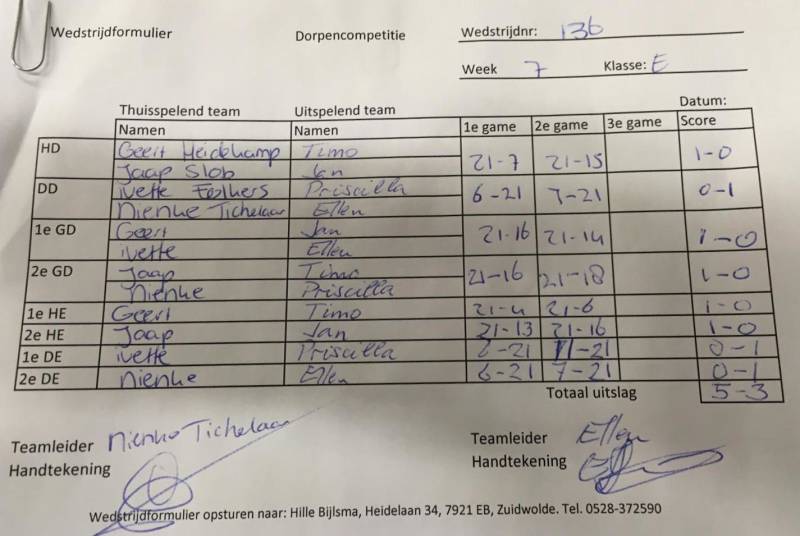 Wedstrijdformulier Dorpencompetitie Wedstrijdnr: 136
Week 7 Klasse: E
Thuisspelend team Uitspelend team Datum:
Namen Namen 1e game 2e game 3e game Score
HD Geert Heidekamp Timo 21-7 21-15 1-0
Jaap Slob Jan
DD ivette Folkers Priscilla 6-21 7-21 0-1
Nienke Tichelaar Ellen
1e GD Geert Jan 21-16 21-14 1-0
ivette Ellen
2e GD Jaap Timo 21-16 21-18 1-0
Nienke Priscilla
1e HE Geert Timo 21-4 21-6 1-0
2e HE Jaap Jan 21-13 21-16 1-0
1e DE ivette Priscilla -21 11-21 0-1
2e DE Nienke Ellen 6-21 7-21 0-1
Totaal uitslag 5-3
Teamleider Nienke Tichelaar Teamleider Ellen
Handtekening Handtekening
Wedstrijdformulier opsturen naar: Hille Bijlsma, Heidelaan 34, 7921 EB, Zuidwolde. Tel. 0528-372590